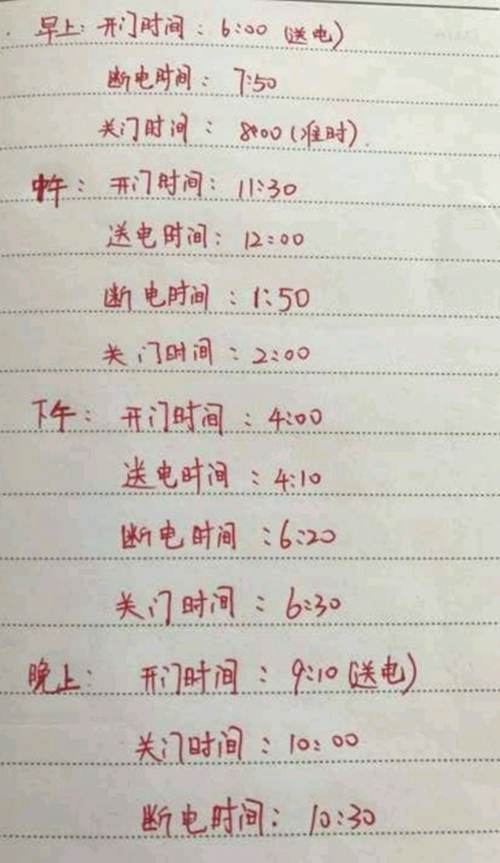 早上: 开门时间: 6:00 (送电)
断电时间: 7:50
关门时间: 8:00 (准时).
中午: 开门时间: 11:30
送电时间: 12:00
断电时间: 1:50
关门时间: 2:00
下午: 开门时间: 4:00
送电时间: 4:10
断电时间: 6:20
关门时间: 6:30
晚上: 开门时间: 9:10 (送电)
关门时间: 10:00
断电时间: 10:30